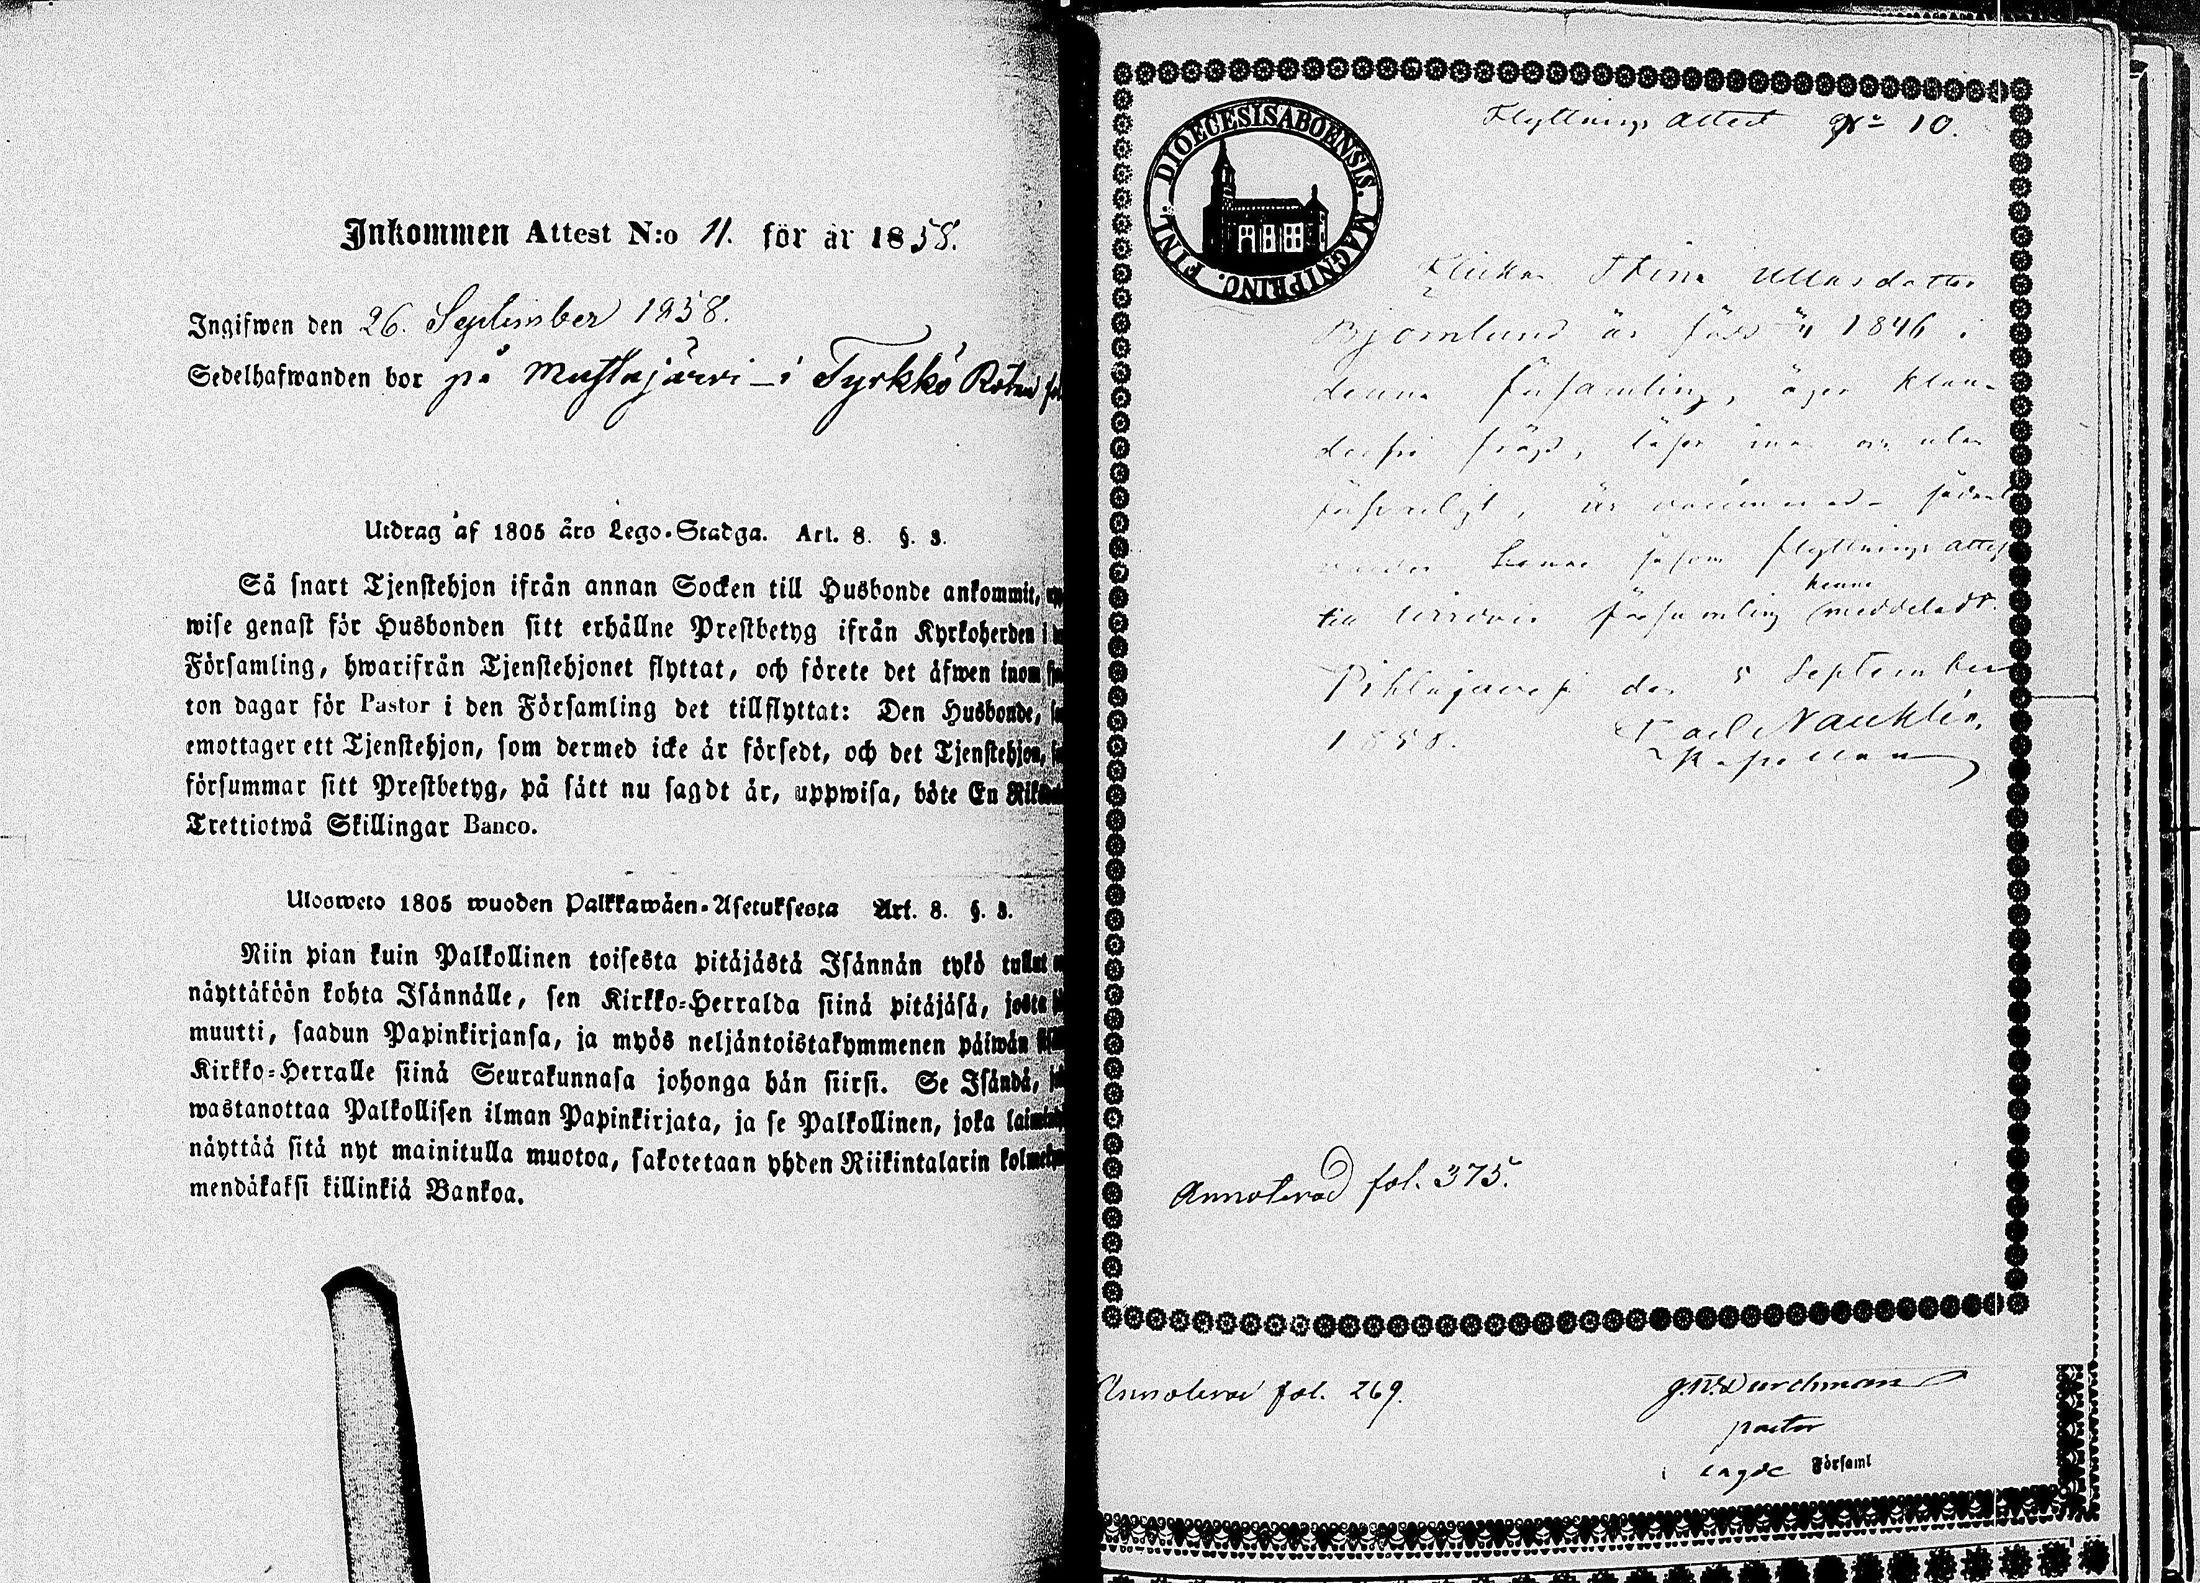 Inkommen Attest N:o 11. för år 1858.
Ingifwen den 26. September 1858.
Sedelhafwanden bor på Mustajärvi i Tyrkkö Rotan
Utdrag af 1805 års Lego-Stadga. Art. 8. §. 3.
Så snart Tjenstehjon ifrån annan Socken till Husbonde ankommit,
wise genast för Husbonden sitt erhållne Prestbetyg ifrån Kyrkoherden i
Församling, hwarifrån Tjenstehjonet flyttat, och förete det äfwen inom
ton dagar för Pastor i den Församling det tillflyttat: Den Husbonde,
emottager ett Tjenstehjon, som dermed icke är försedt, och det Tjenstehjon,
försummar sitt Prestbetyg, på sätt nu sagdt är, uppwisa, böte En
Trettiotwå Skillingar Banco.
Ulosweto 1805 wuoden Palkkawäen-Asetuksesta Art. 8. §. 3.
Niin pian kuin Palkollinen toisesta pitäjästä Isännän tykö tullut
näyttäköön kohta Isännälle, sen Kirkko-Herralda siinä pitäjäsä, josta
muutti, saadun Papinkirjansa, ja myös neljäntoistakymmenen päiwän
Kirkko-Herralle siinä Seurakunnasa johonga hän siirsi. Se Isändä,
wastanottaa Palkollisen ilman Papinkirjata, ja se Palkollinen, joka
näyttää sitä nyt mainitulla muotoa, sakotetaan yhden Riikintalarin
mendäkaksi killinkiä Bankoa.
DIOECESIS ABOENSIS. MAGNI PRINC. FINL.
Flyttnings Attest No 10.
Flickan Stina Ullasdotter
Björnlund är född 1846 i
denna församling, äger klan-
derfri frägd, läser innan
försvarligt, är vaccinerad
flyttnings attest
till församling henne meddeladt.
Pihlajavesi den 5 September
1858. Carl Nauklér,
Kapellan
Annoterad fol. 375.
Annoterad fol. 269.
J. W. Durchman
pastor
i Församl